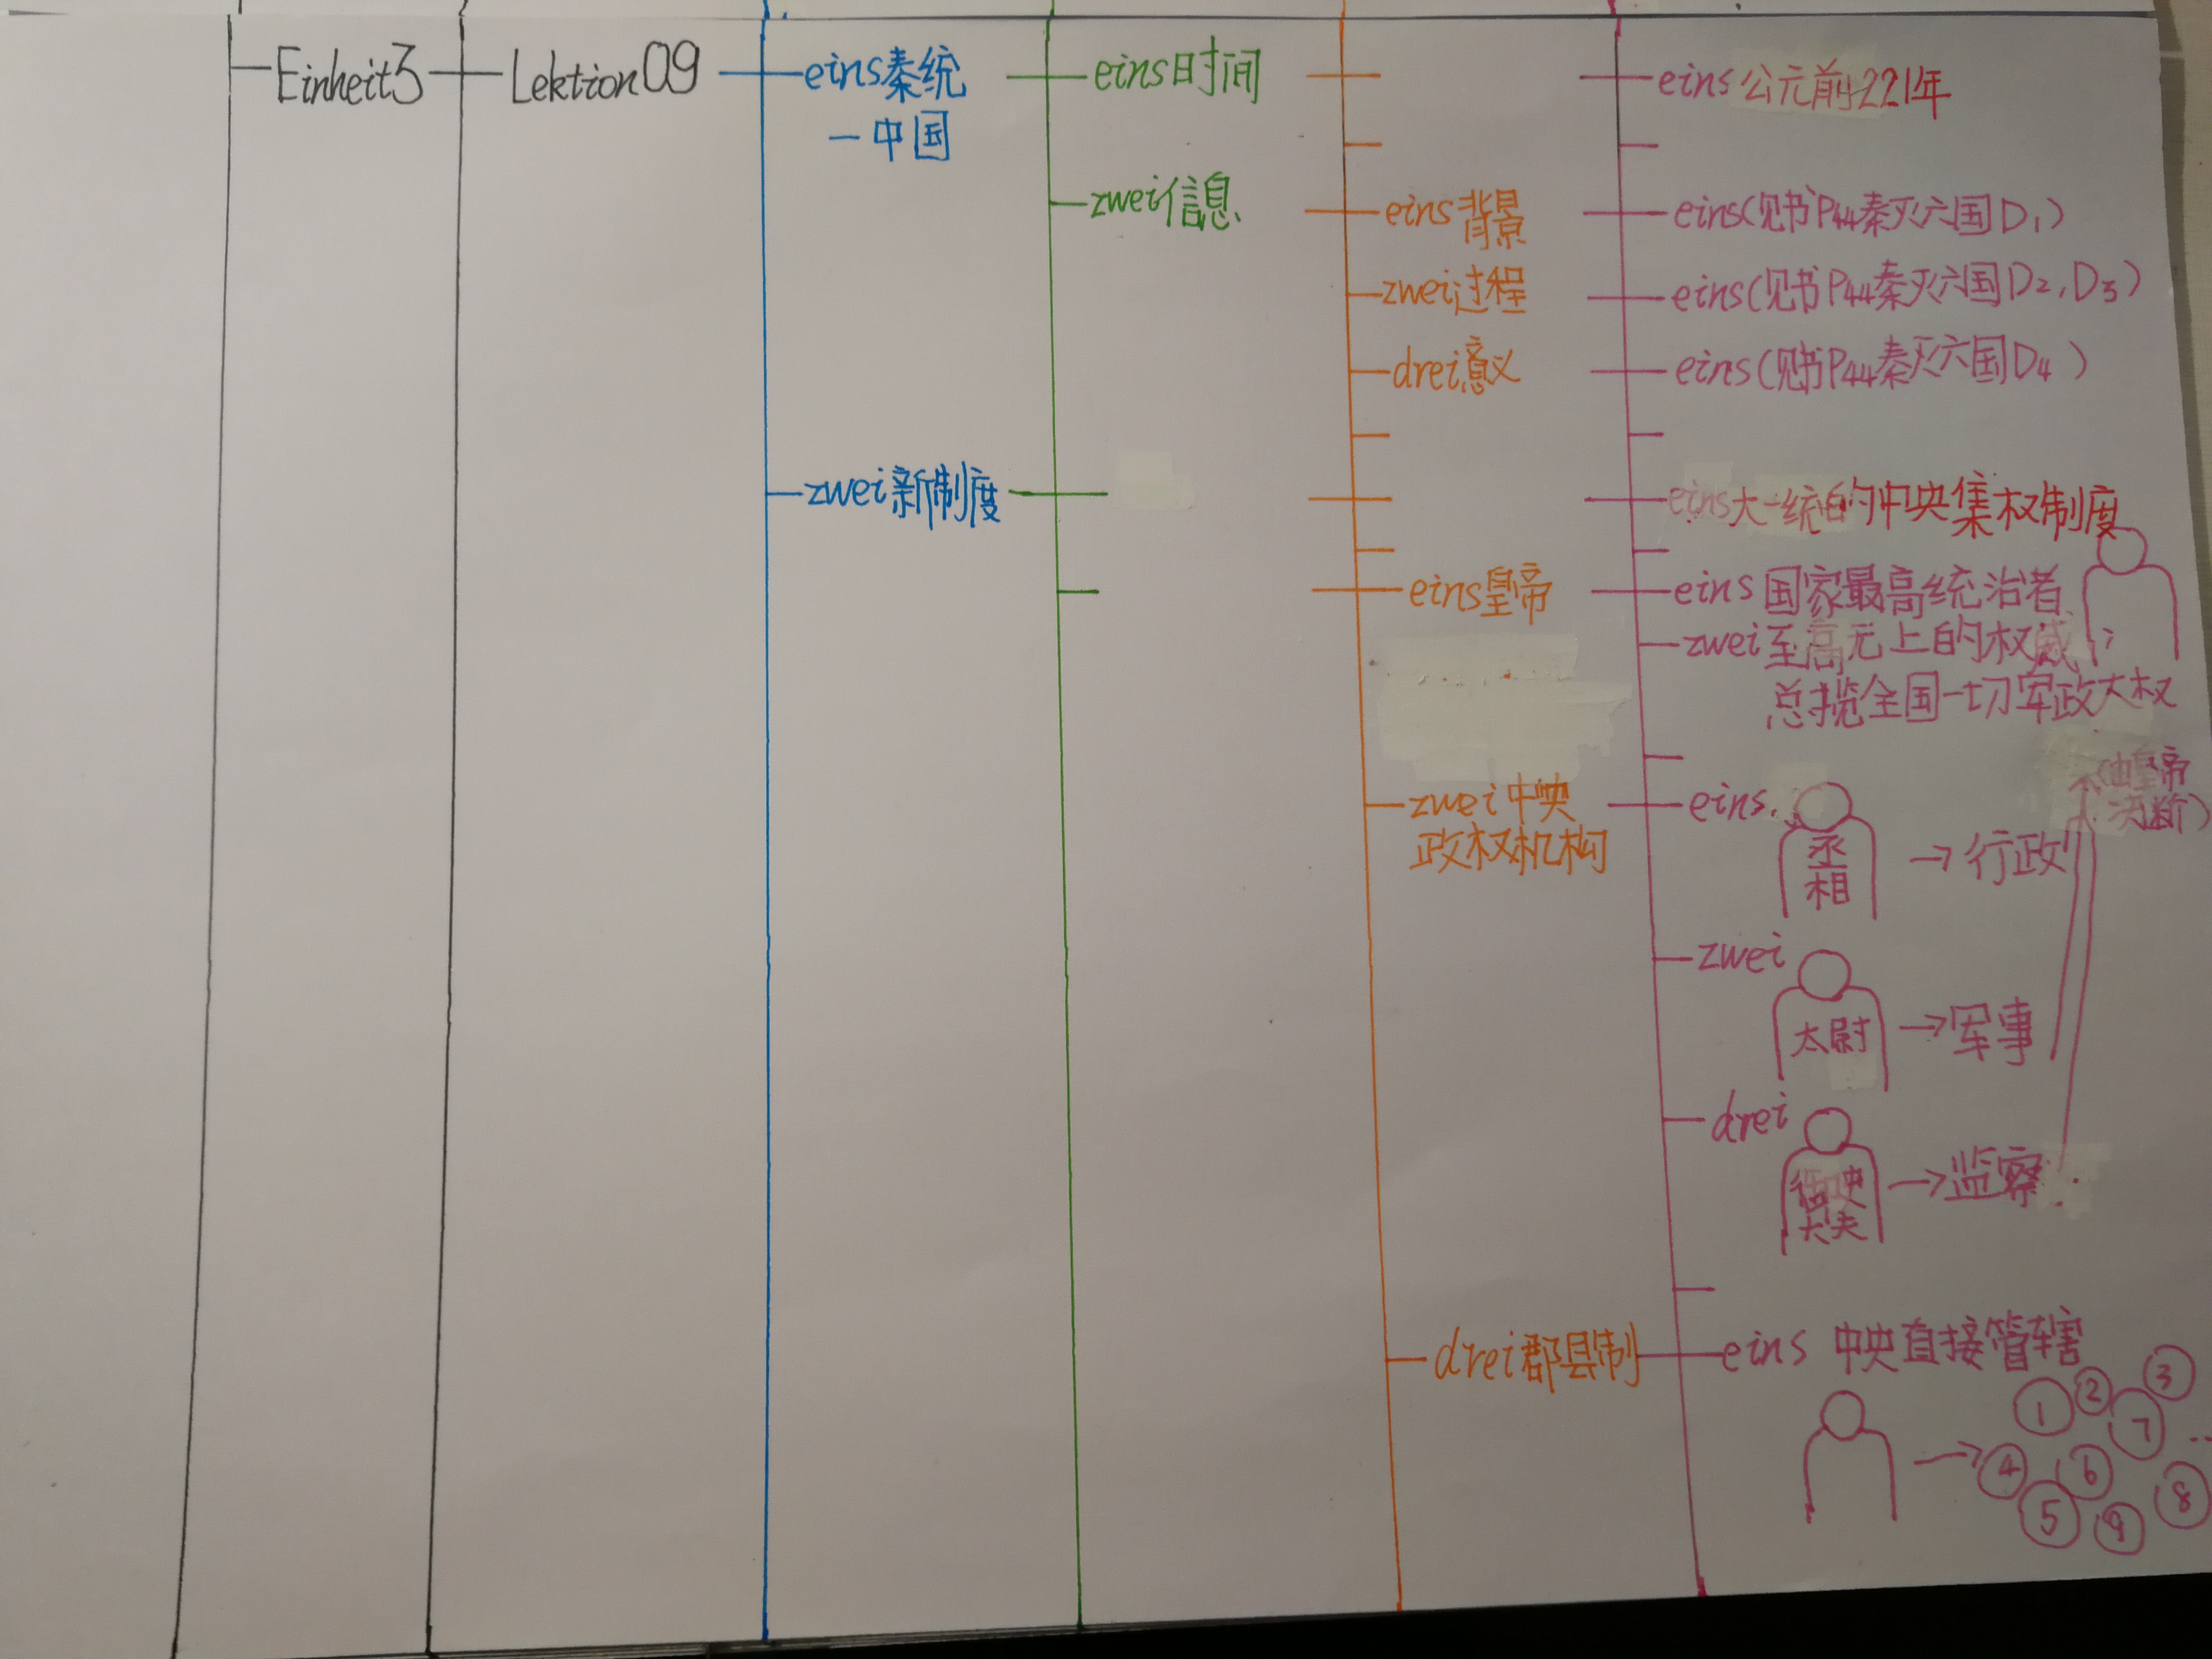 Einheit3
Lektion09
eins秦统
一中国
eins时间
eins公元前221年
zwei信息
eins背景
eins(见书P44秦灭六国D1)
zwei过程
eins(见书P44秦灭六国D2,D3)
drei意义
eins(见书P44秦灭六国D4)
zwei新制度
eins大一统的中央集权制度
eins皇帝
eins国家最高统治者
zwei至高无上的权威,
总揽全国一切军政大权
zwei中央
政权机构
eins
丞
相
→行政
(由皇帝
决断)
zwei
太尉
→军事
drei
御史
大夫
→监察
drei郡县制
eins 中央直接管辖
→
①
②
③
④
⑤
⑥
⑦
⑧
⑨
…